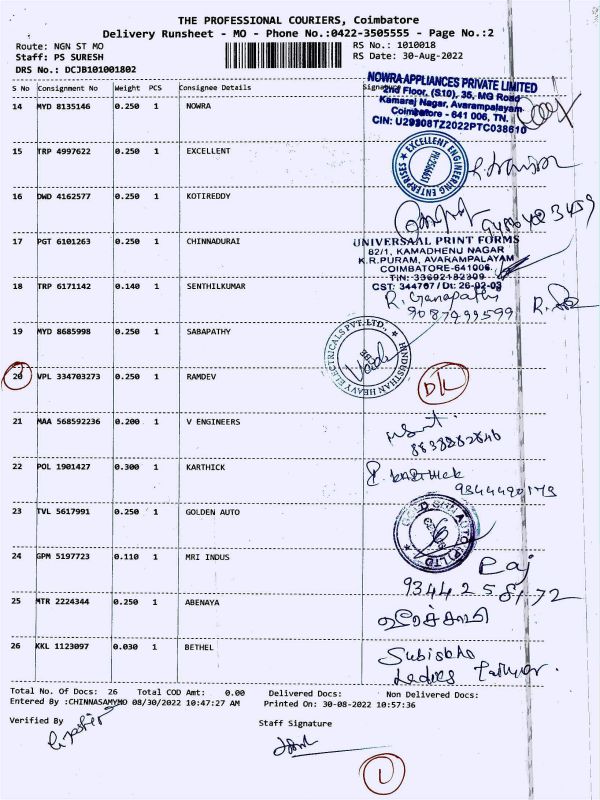 THE PROFESSIONAL COURIERS, Coimbatore
Delivery Runsheet - MO - Phone No.:0422-3505555 - Page No.:2
Route: NGN ST MO
RS No.: 1010018
Staff: PS SURESH
RS Date: 30-Aug-2022
DRS No.: DCJB101001802
S No Consignment No Weight PCS Consignee Details Signature
NOWRA APPLIANCES PRIVATE LIMITED
2nd Floor, (S10), 35, MG Road
Kamaraj Nagar, Avarampalayam
Coimbatore - 641 006, TN.
CIN: U29308TZ2022PTC038610
14 MYD 8135146 0.250 1 NOWRA
15 TRP 4997622 0.250 1 EXCELLENT
EXCELLENT ENGINEERING ENTERPRISES
16 DWD 4162577 0.250 1 KOTIREDDY
17 PGT 6101263 0.250 1 CHINNADURAI
UNIVERSAAL PRINT FORMS
82/1, KAMADHENU NAGAR
K.R.PURAM, AVARAMPALAYAM
COIMBATORE-641006.
TIN: 33602182309
CST: 344767 / Dt: 26-02-03
18 TRP 6171142 0.140 1 SENTHILKUMAR
R. Ganapathi
9087999599
19 MYD 8685998 0.250 1 SABAPATHY
HINDUSTHAN HEAVY ELECTRICALS PVT. LTD.,
20 VPL 334703273 0.250 1 RAMDEV
DL
21 MAA 568592236 0.200 1 V ENGINEERS
8838882846
22 POL 1901427 0.300 1 KARTHICK
P. KARTHICK
9344490173
23 TVL 5617991 0.250 1 GOLDEN AUTO
24 GPM 5197723 0.110 1 MRI INDUS
Raj
9344258172
25 MTR 2224344 0.250 1 ABENAYA
26 KKL 1123097 0.030 1 BETHEL
Ladies Tailor.
Total No. Of Docs: 26 Total COD Amt: 0.00 Delivered Docs: Non Delivered Docs:
Entered By :CHINNASAMYMO 08/30/2022 10:47:27 AM Printed On: 30-08-2022 10:57:36
Verified By
Staff Signature
1